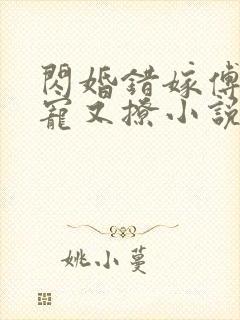 閃婚錯嫁傅
寵又撩小説
姚小蔓